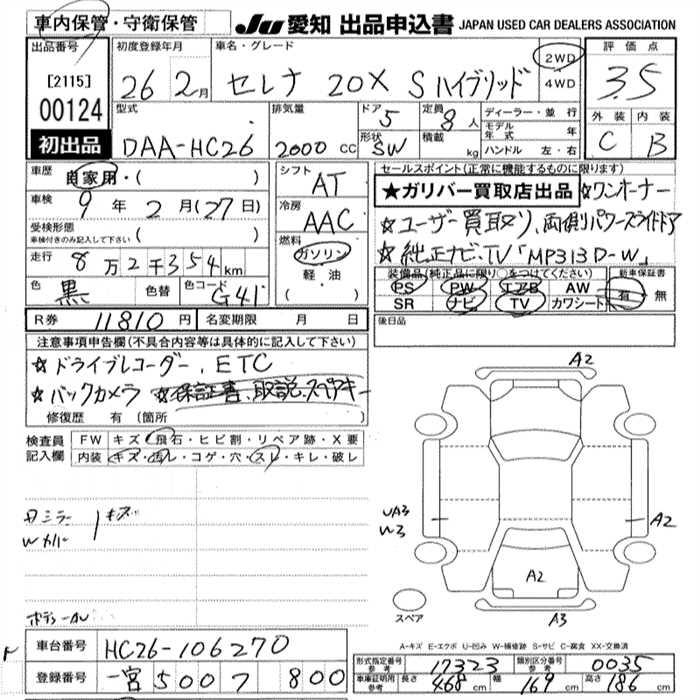 車内保管・守衛保管
JU 愛知 出品申込書 JAPAN USED CAR DEALERS ASSOCIATION
出品番号 [2115] 00124 初出品
初度登録年月 26 2月
車名・グレード セレナ 20X Sハイブリッド
2WD・4WD
評価点 3.5
外装 C 内装 B
型式 DAA-HC26
排気量 2000 CC
ドア 5
形状 SW
定員 8人
積載 kg
ディーラー・並行
モデル年式 年
ハンドル 左・右
車歴 自家用・( )
車検 9年 2月 (27日)
受検形態 車検付きのみ記入して下さい ( )
走行 8万2千354km
色 黒 色替 色コード G41
R券 11810円 名変期限 月 日
シフト AT
冷房 AAC
燃料 ガソリン 軽・油 ( )
セールスポイント(正常に機能するものに限ります)
★ガリバー買取店出品 ☆ワンオーナー
☆ユーザー買取り、両側パワースライドドア
☆純正ナビ、TV「MP313D-W」
装備品(純正品に限り○をつけてください)
PS PW エアB AW
SR ナビ TV カワシート
新車保証書 有・無
後日品
注意事項申告欄(不具合内容等は具体的に記入して下さい)
☆ドライブレコーダー、ETC
☆バックカメラ ☆保証書、取説、スペアキー
修復歴 有 (箇所 )
検査員記入欄
FW キズ・飛石・ヒビ割・リペア跡・X要
内装 キズ・汚レ・コゲ・穴・スレ・キレ・破レ
A2
UA3
W3
A2
A2
A3
スペア
A-キズ E-エクボ U-凹み W-補修跡 S-サビ C-腐食 XX-交換済
車台番号 HC26-106270
登録番号 一宮 500 フ 800
形式指定番号 参考 17323 類別区分番号 参考 0035
車庫証明用 参考 長さ 468cm 幅 169cm 高さ 186cm